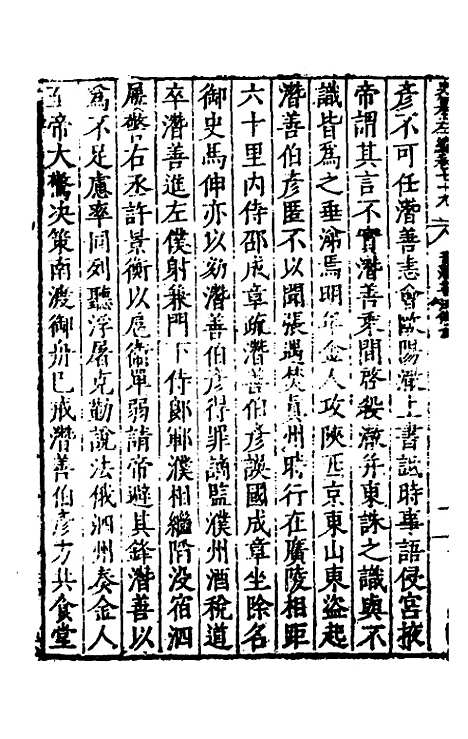 彥不可任潛善恚會歐陽澈上書詆時事語侵宮掖
帝謂其言不實潛善乘間啓殺澈并東誅之識與不
識皆爲之垂涕焉明年金人攻陝西京東山東盜起
潛善伯彥匿不以聞張遇焚眞州時行在廣陵相距
六十里內侍邵成章疏潛善伯彥誤國成章坐除名
御史馬伸亦以劾潛善伯彥得罪謫監濮州酒稅道
卒潛善進左僕射兼門下侍郎鄆濮相繼陷沒宿泗
屢警右丞許景衡以扈衛單弱請帝避其鋒潛善以
爲不足慮率同列聽浮屠克勤說法俄泗州奏金人
至帝大驚決策南渡御舟已戒潛善伯彥方共食堂